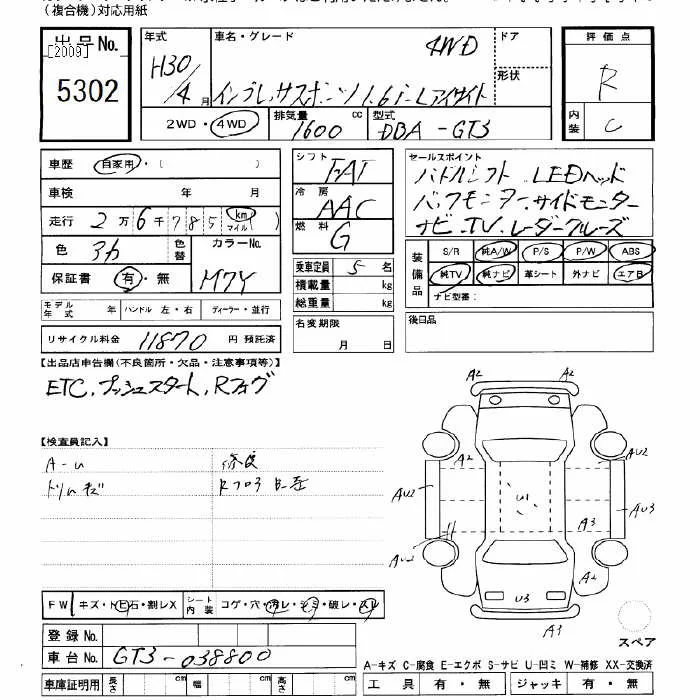 （複合機）対応用紙
出品No.
[2009]
5302
年式
H30/4月
車名・グレード
4WD
インプレッサスポーツ 1.6i-Lアイサイト
ドア
形状
2WD・4WD
排気量
1600 cc
型式
DBA-GT3
評価点
R
内装
C
車歴 自家用・( )
車検 年 月
走行 2万6千785 km マイル ( )
色 アカ
色替
カラーNo. M7Y
保証書 有・無
モデル年式 年 ハンドル 左・右 ディーラー・並行
リサイクル料金 11870 円 預託済
シフト FAT
冷房 AAC
燃料 G
乗車定員 5 名
積載量 kg
総重量 kg
名変期限
月 日
セールスポイント
パドルシフト LEDヘッド
バックモニター、サイドモニター
ナビ、TV、レーダークルーズ
装備品
S/R 純A/W P/S P/W ABS
純TV 純ナビ 革シート 外ナビ エアB
ナビ型番:
後日品
【出品店申告欄(不良箇所・欠品・注意事項等)】
ETC、プッシュスタート、Rフォグ
【検査員記入】
A-U
R
FW キズ・トビ石・割レX
シート内装 コゲ・穴・汚レ・シミ・破レ・スレ
登録No.
車台No. GT3-038800
車庫証明用 長さ cm 幅 cm 高さ cm
A2 A2
A2
AU2
AU2
U1
AU3
A3
AU2
A2
U3
A3
スペア
A-キズ C-腐食 E-エクボ S-サビ U-凹ミ W-補修 XX-交換済
工具 有・無 ジャッキ 有・無